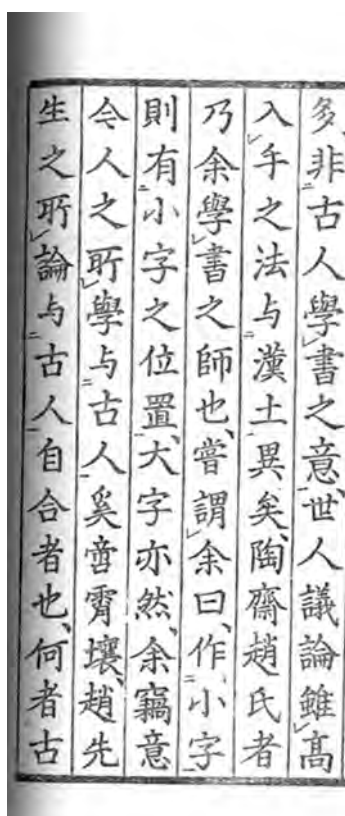 多、非古人學書之意、世人議論雖高
入手之法与漢土異矣、陶齋趙氏者
乃余學書之師也、嘗謂余曰、作小字
則有小字之位置、大字亦然、余竊意
今人之所學与古人奚啻霄壤、趙先
生之所論与古人自合者也、何者古